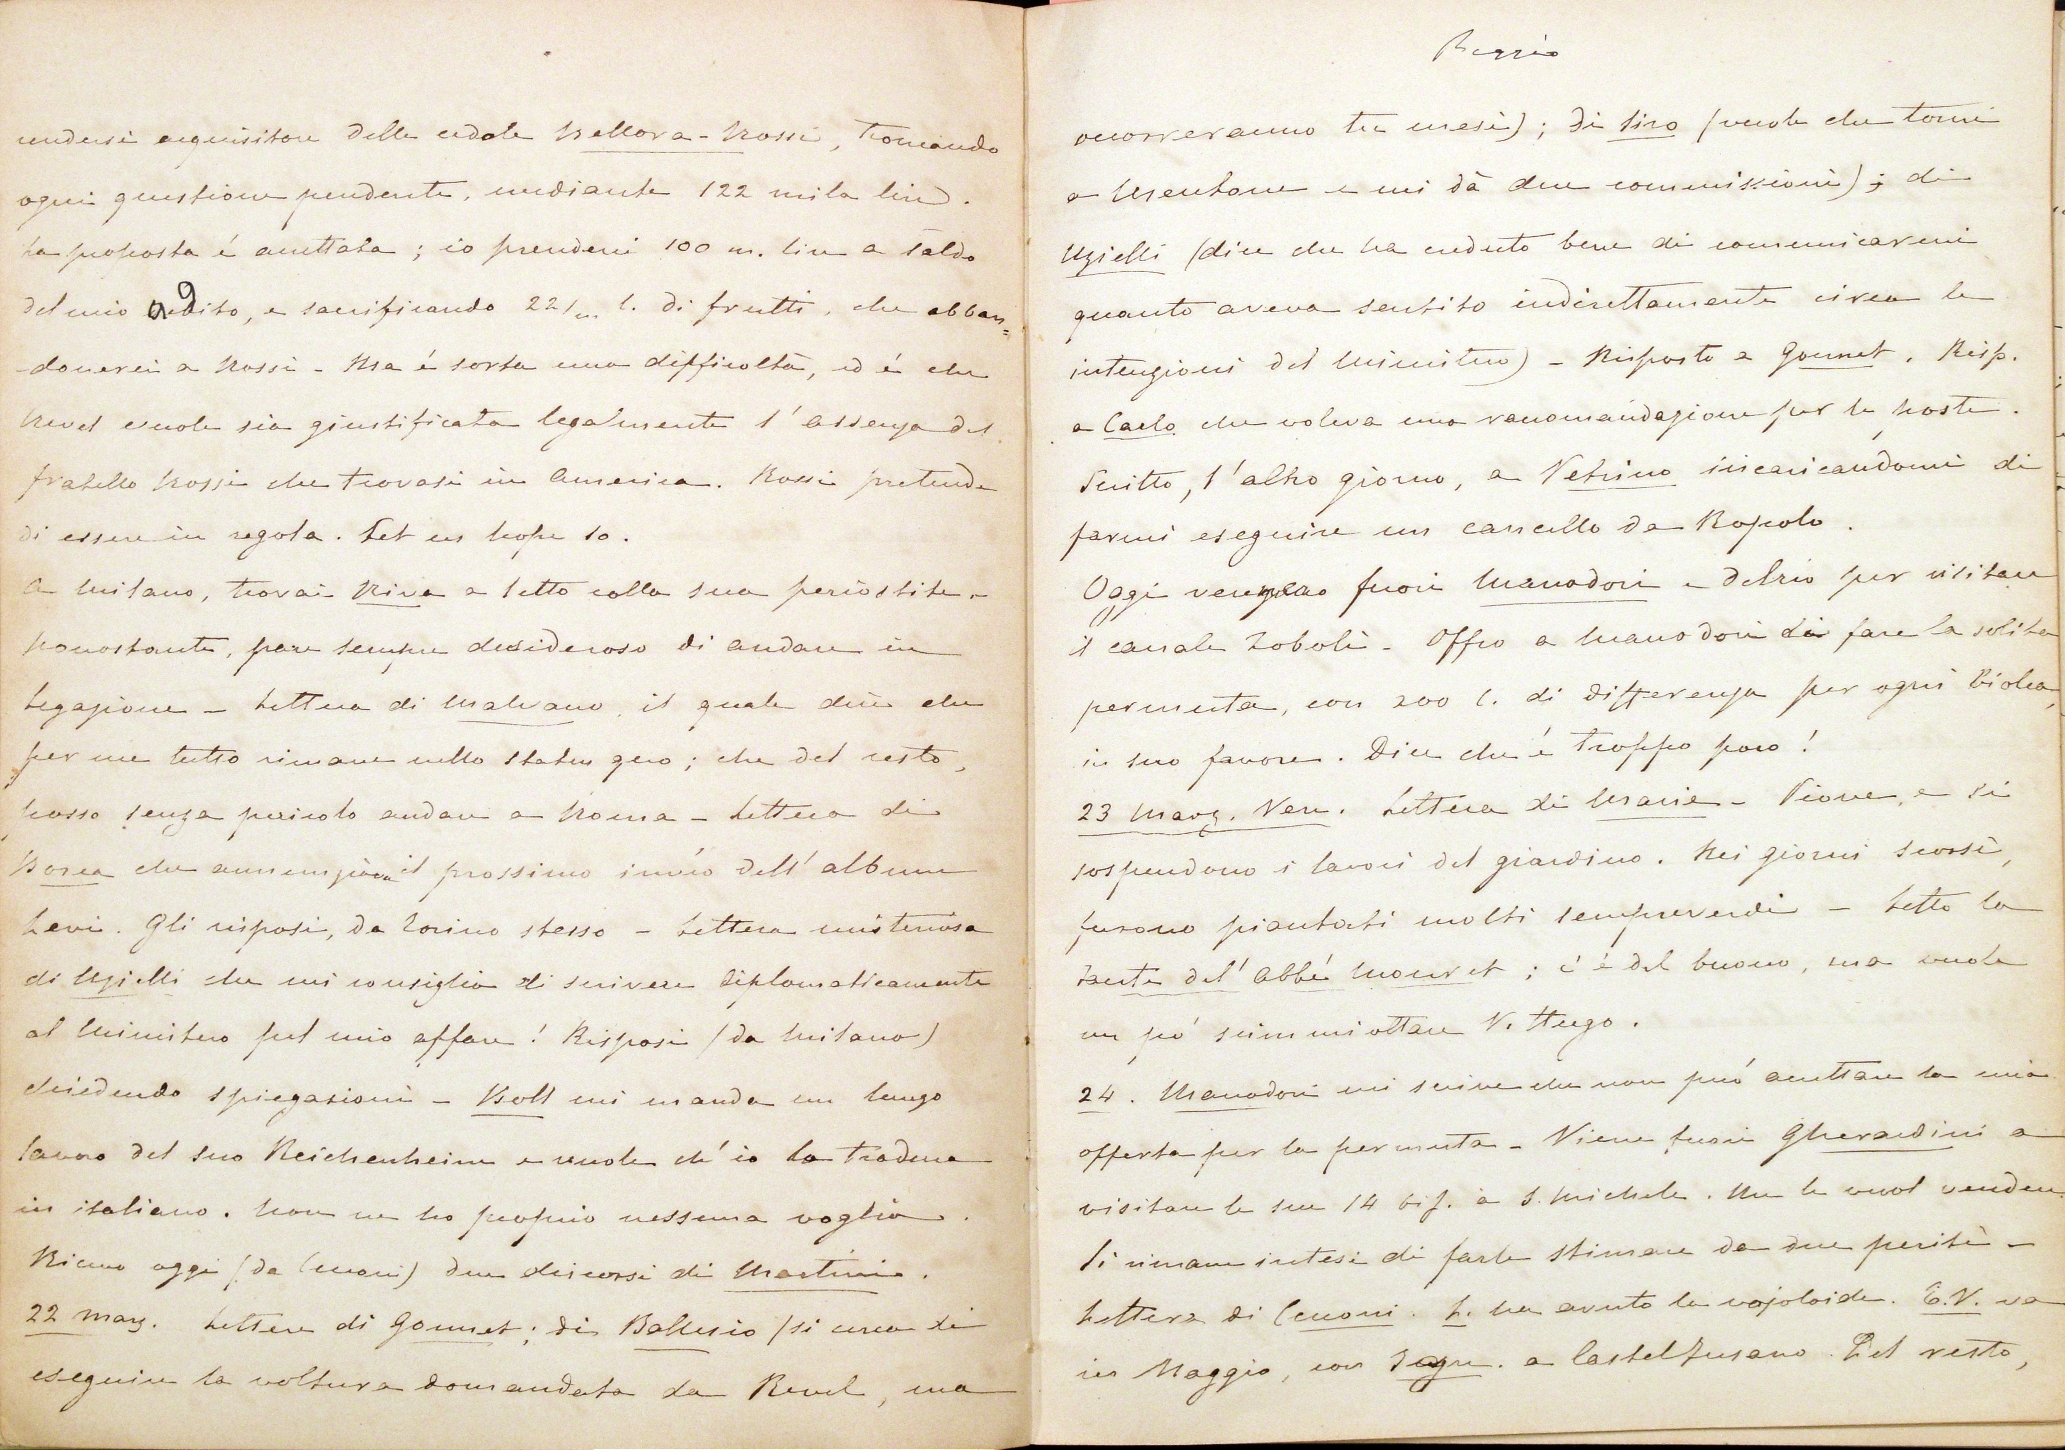 rendersi acquisitore delle cedole Bellora-Rossi, troncando
ogni questione pendente, mediante 122 mila lire.
La proposta é accettata; io prenderei 100 m. lire a saldo
del mio credito, e sacrificando 22/m l. di frutti, che abban=
-donerei a Rossi - Ma é sorta una difficoltà, ed é che
Revel vuole sia giustificata legalmente l'assenza del
fratello Rossi che trovasi in America. Rossi pretende
di essere in regola. Let us hope so.
A Milano, trovai Riva a letto colla sua periostite -
nonostante, pare sempre desideroso di andare in
Legazione - Lettera di Malvano, il quale dice che
per me tutto rimane nello statu quo; che del resto,
posso senza pericolo andare a Roma - Lettera di
Borea che annunziava il prossimo invio dell'album
Levi. Gli risposi, da Torino stesso - Lettera misteriosa
di Uzielli che mi consiglia di scrivere diplomaticamente
al Ministero pel mio affare! Risposi (da Milano)
chiedendo spiegazioni - Boll mi manda un lungo
lavoro del suo Reichenheim e vuole ch'io lo traduca
in italiano. Non ne ho proprio nessuna voglia.
Ricevo oggi (da Cenoni) due discorsi di Martini.
22 marz. Lettere di Gonnet; di Ballerio (si cerca di
eseguire la voltura domandata da Revel, ma
Reggio
occorreranno tre mesi); di Siro (vuole che torni
a Mentone e mi dà due commissioni); di
Uzielli (dice che ha creduto bene di comunicarmi
quanto aveva sentito indirettamente circa le
intenzioni del Ministro) - Risposto a Gonnet. Risp.
a Carlo che voleva una raccomandazione per le poste.
Scritto, l'altro giorno, a Vetrino incaricandomi di
farmi eseguire un cancello da Ropolo.
Oggi vengono fuori Manodori e Delrio per visitare
il canale Zoboli - Offro a Manodori di fare la solita
permuta, con 200 l. di differenza per ogni Biolca,
in suo favore. Dice che é troppo poco!
23 Marz. Ven. Lettera di Marie - Piove, e si
sospendono i lavori del giardino. Nei giorni scorsi,
furono piantati molti sempreverdi - Letto la
Dante del' abbé Mouret; c'é del buono, ma vuole
un pó scimmiottare V. Hugo.
24. Manodori mi scrive che non puó accettare la mia
offerta per la permuta - Viene fuori Gherardini a
visitare le sue 14 bif. a S. Michele. Me le vuol vendere.
Si rimane intesi di farle stimare da due periti -
Lettera di Cenoni. L. ha avuto la vajoloide. E.V. va
in Maggio, con Segre. a Castelfusano. Del resto,